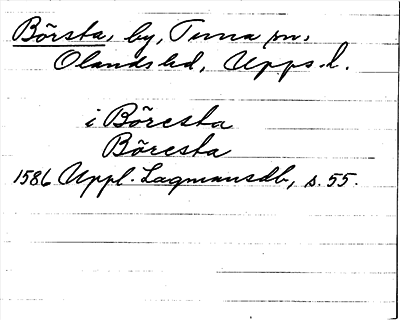 Börsta, by, Tuna sn,
Olands hd, Upps. l.
i Böresta
Böresta
1586 Uppl. Lagmansdb, s. 55.